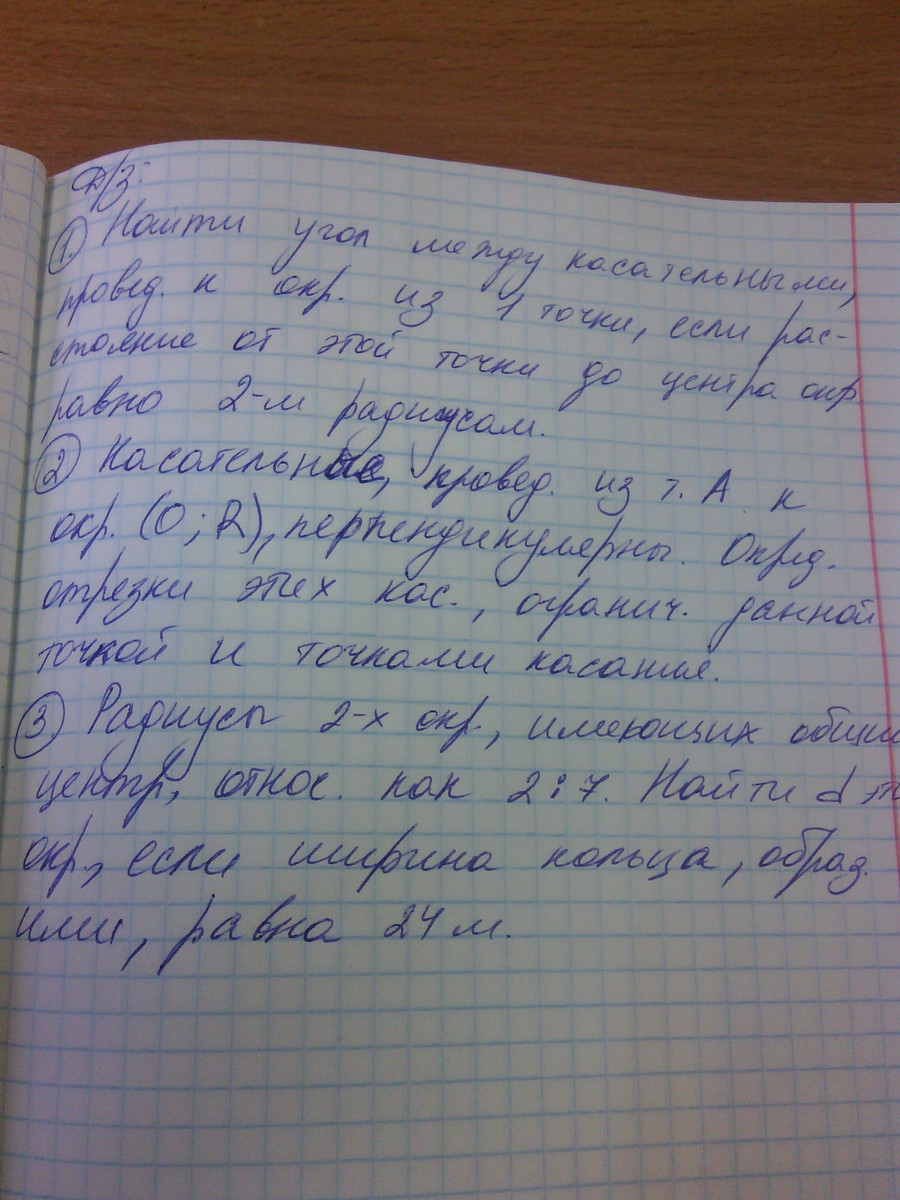 Д/З:
1. Найти угол между касательными,
провед. к окр. из 1 точки, если рас-
стояние от этой точки до центра окр
равно 2-м радиусам.
2 Касательные, провед. из т. А к
окр. (О; R), перпендикулярны. Опред.
отрезки этих кас., огранич. данной
точкой и точками касания.
3 Радиусы 2-х окр., имеющих общий
центр, относ. как 2:7. Найти d эт
окр., если ширина кольца, образ.
ими, равна 24 м.